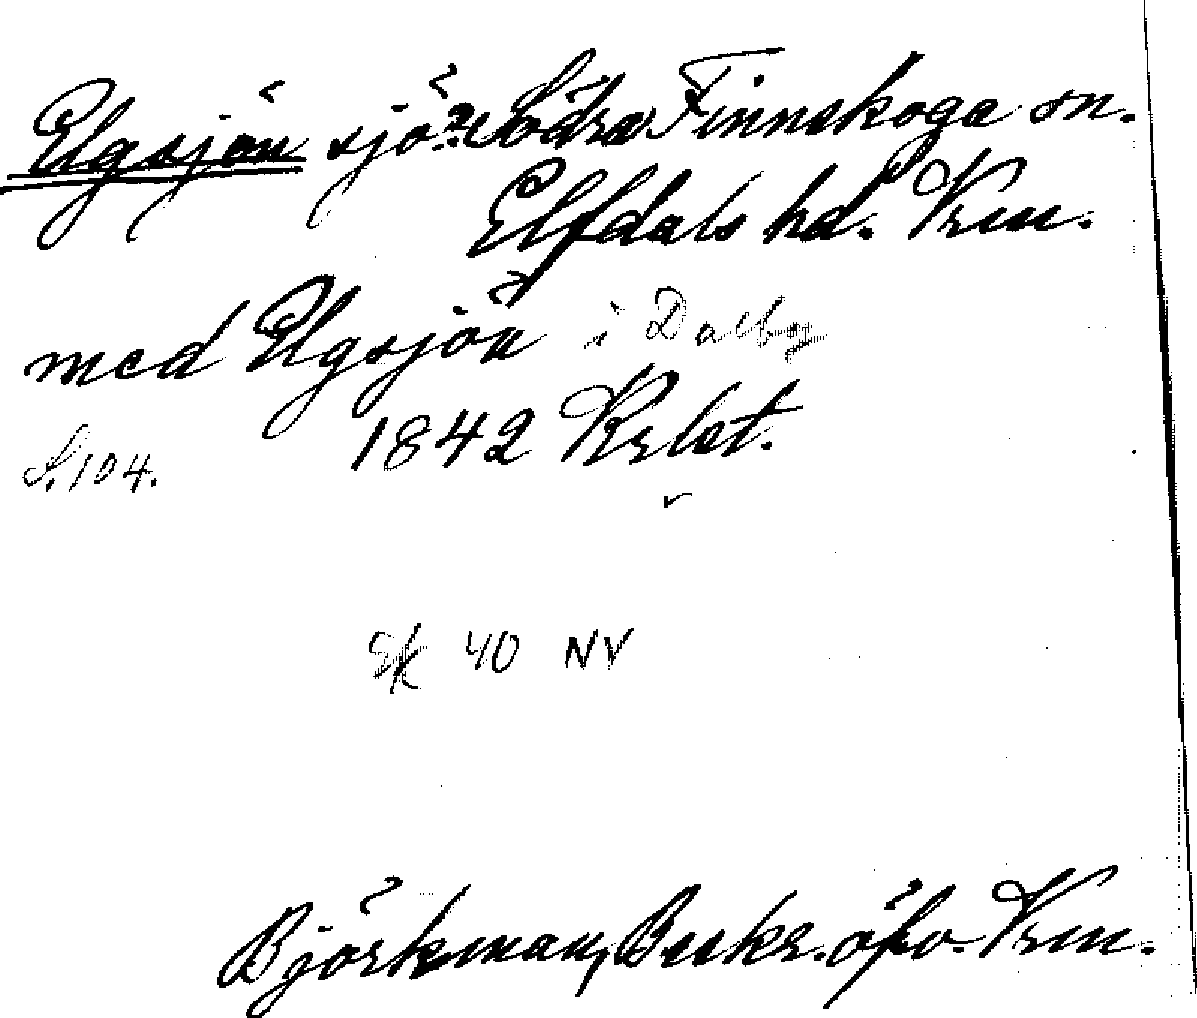 Elgsjön sjö: Södra Finnskoga sn.
Elfdals hd. Vrm.
med Elgsjön i Dalby
1842 Krlst.
S. 104.
Ek 40 NV
Björkman, Beskr. öfv. Vrm.